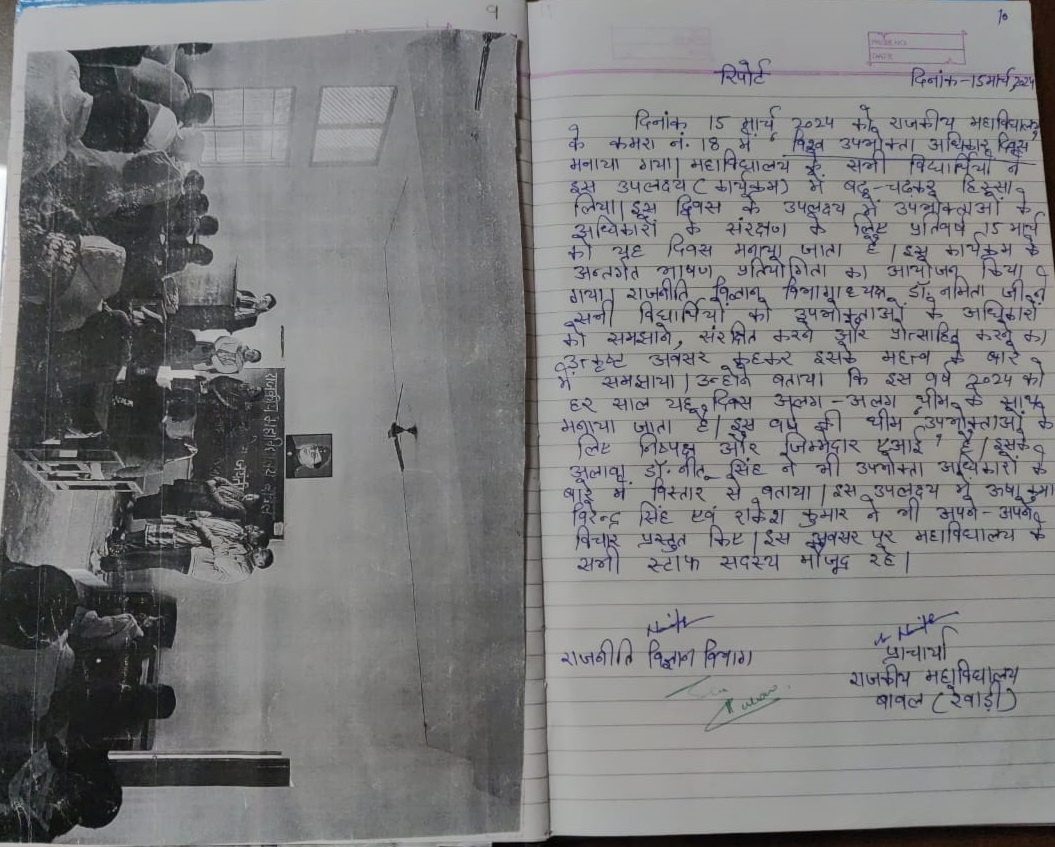 9
राजकीय महाविद्यालय बावल
10
PAGE NO.
DATE
रिपोर्ट दिनांक-15मार्च,2024
दिनांक 15 मार्च 2024 को राजकीय महाविद्यालय
के कमरा नं. 18 में विश्व उपभोक्ता अधिकार दिवस
मनाया गया। महाविद्यालय के सभी विद्यार्थियों ने
इस उपलक्ष्य (कार्यक्रम) में बढ़-चढ़कर हिस्सा
लिया। इस दिवस के उपलक्ष्य में उपभोक्ताओं के
अधिकारों के संरक्षण के लिए प्रतिवर्ष 15 मार्च
को यह दिवस मनाया जाता है। इस कार्यक्रम के
अन्तर्गत भाषण प्रतियोगिता का आयोजन किया
गया। राजनीति विज्ञान विभागाध्यक्ष डॉ. नमिता जी ने
सभी विद्यार्थियों को उपभोक्ताओं के अधिकारों
को समझाने, संरक्षित करने और प्रोत्साहित करने का
उत्कृष्ट अवसर कहकर इसके महत्त्व के बारे
में समझाया। उन्होंने बताया कि इस वर्ष 2024 को
हर साल यह दिवस अलग-अलग थीम के साथ
मनाया जाता है। इस वर्ष की थीम 'उपभोक्ताओं के
लिए निष्पक्ष और जिम्मेदार एआई' है। इसके
अलावा डॉ. नीतू सिंह ने भी उपभोक्ता अधिकारों के
बारे में विस्तार से बताया। इस उपलक्ष्य में
विरेन्द्र सिंह एवं राकेश कुमार ने भी अपने-अपने
विचार प्रस्तुत किए। इस अवसर पर महाविद्यालय के
सभी स्टाफ सदस्य मौजूद रहे।
राजनीति विज्ञान विभाग
प्राचार्या
राजकीय महाविद्यालय
बावल (रेवाड़ी)